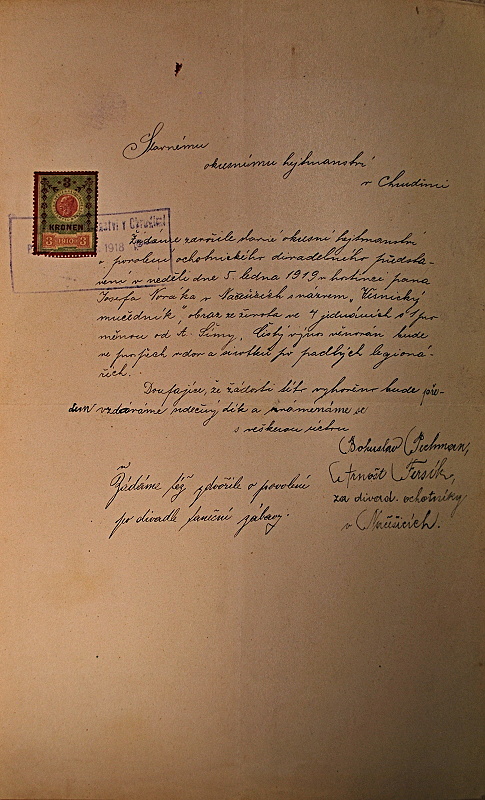 Slavnému
okresnímu hejtmanství
v Chrudimi
3
KRONEN
3 1910 3
1918
Žádáme zdvořile slavné okresní hejtmanství
o povolení ochotnického divadelního předsta-
vení v neděli dne 5. ledna 1919 v hostinci pana
Josefa Nováka v Načešicích s názvem "Křinecký
mučedník", obraz ze života ve 4 jednáních s 1 pro
měnou od A. Šímy. Čistý výnos věnován bude
ve prospěch vdov a sirotků po padlých legioná-
řích.
Doufajíce, že žádosti této vyhověno bude pře-
dem vzdáváme srdečný dík a znamenáme se
s veškerou úctou
Bohuslav Pechman,
Arnošt Fersík,
za divad. ochotníky
v Načešicích.
Žádáme též zdvořile o povolení
po divadle taneční zábavy.